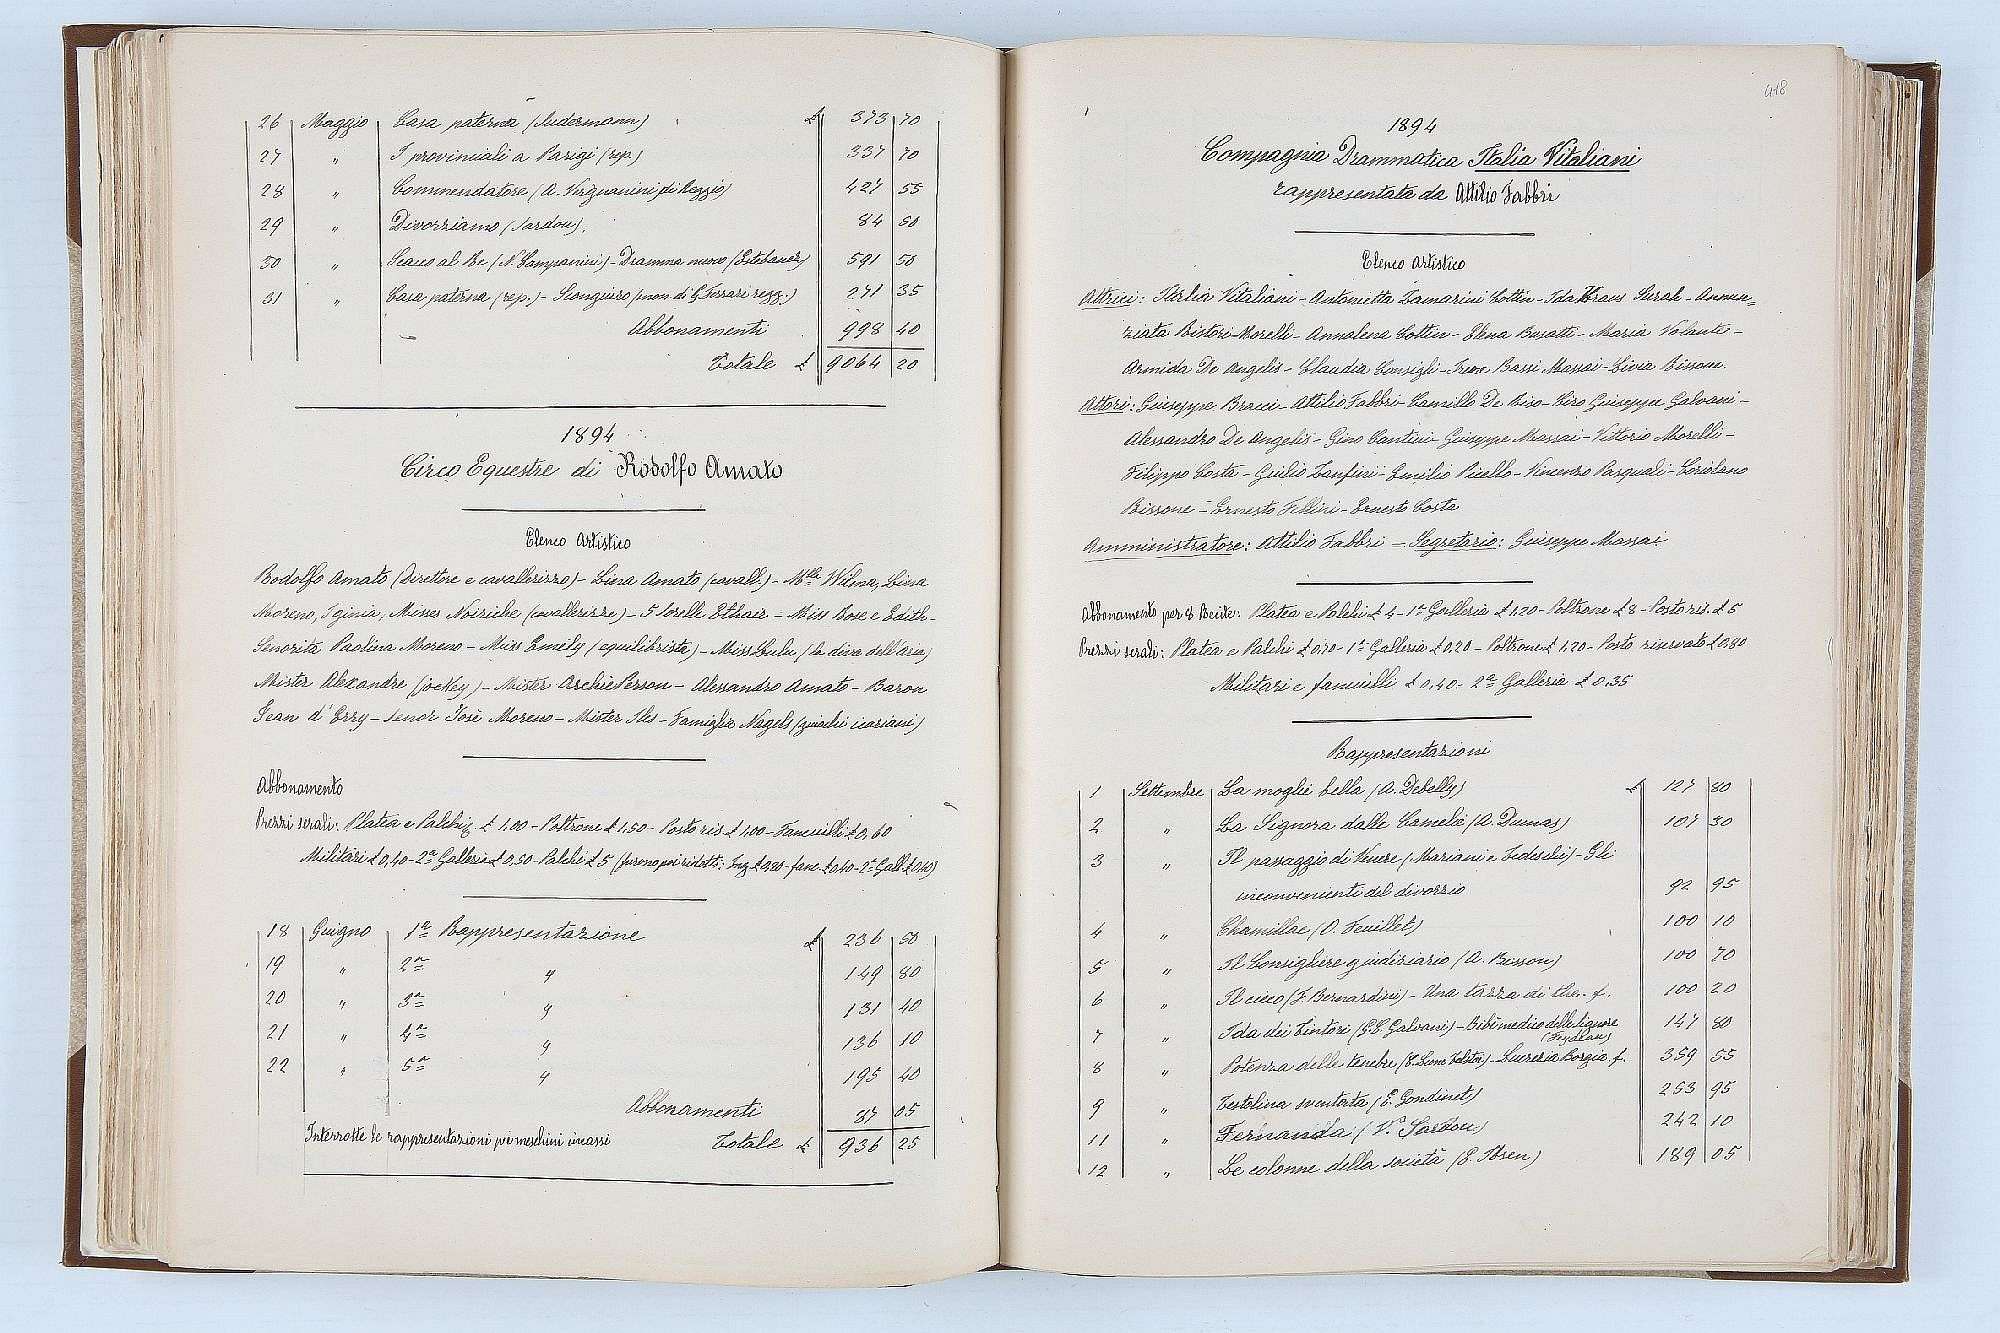 26 Maggio Casa paterna (Sudermann) £ 373 70
27 " I provinciali a Parigi (rep.) 337 70
28 " Commendatore (A. Virgnanini di Reggio) 427 55
29 " Divorziamo (Sardou). 84 50
30 " Scacco al Re (N. Campanini) - Dramma nuovo (Estebanez) 591 50
31 " Casa paterna (rep.) - Scongiuro (mon. di G. Ferrari regg:) 271 35
Abbonamenti 998 40
Totale £ 9064 20
1894
Circo Equestre di Rodolfo Amato
Elenco Artistico
Rodolfo Amato (Direttore e cavallerizzo) - Lina Amato (cavall.) - Mlle Wilma, Lina
Moreno, Iginia, Misses Noiriche (cavallerizze) - 5 Sorelle Ethair - Miss Rose e Edith -
Senorita Paolina Moreno - Miss Emily (equilibrista) - Miss Lulu (la diva dell'aria)
Mister Alexandre (jockey) - Mister Archie Person - Alessandro Amato - Baron
Jean d'Erzy - Senor Josè Moreno - Mister Iles - Famiglia Nagels (giuochi icariani)
Abbonamento
Prezzi serali: Platea e Palchi £ 1,00 - Poltrone £ 1,50 - Posto ris £ 1,00 - Fanciulli £ 0,60
Militari £ 0,40 - 2a Galleria £ 0,50 - Palchi £ 5 (furono poi ridotti: Ing £ 0,80 - fanc £ 0,40 - 2a Gall £ 0,40)
18 Giugno 1a Rappresentazione £ 236 50
19 " 2a " 149 80
20 " 3a " 131 40
21 " 4a " 136 10
22 " 5a " 195 40
Abbonamenti 87 05
Interrotte le rappresentazioni pei meschini incassi Totale £ 936 25
418
1894
Compagnia Drammatica Italia Vitaliani
rappresentata da Attilio Fabbri
Elenco Artistico
Attrici: Italia Vitaliani - Antonietta Zamarini Cottin - Ida Sarah - Annun=
ziata Ristori-Morelli - Annalena Cottin - Elena Busatti - Maria Volante -
Armida De Angelis - Claudia Consigli - Irene Bassi Massai - Livia Bissone.
Attori: Giuseppe Bracci - Attilio Fabbri - Camillo De Riso - Ciro Giuseppe Galvani -
Alessandro De Angelis - Gino Cantini - Giuseppe Massai - Vittorio Morelli -
Filippo Costa - Giulio Zanfini - Emilio Picello - Vincenzo Pasquali - Coriolano
Bissone - Ernesto Fellini - Ernesto Costa
Amministratore: Attilio Fabbri - Segretario: Giuseppe Massai.
Abbonamento per 8 Recite: Platea e Palchi £ 4 - 1a Galleria £ 1,20 - Poltrone £ 8 - Posto ris. £ 5
Prezzi serali: Platea e Palchi £ 0,70 - 1a Galleria £ 0,20 - Poltrone £ 1,20 - Posto riservato £ 0,80
Militari e fanciulli £ 0,40 - 2a Galleria £ 0,35
Rappresentazioni
1 Settembre La moglie bella (A. Debelly) £ 127 80
2 " La Signora dalle Camelie (A. Dumas) 107 30
3 " Il passaggio di Venere (Mariani e Tedeschi) - Gli
inconvenienti del divorzio 92 95
4 " Chamillac (O. Feuillet) 100 10
5 " Il Consigliere giudiziario (A. Bisson) 100 70
6 " Il cieco (F. Bernardini) - Una tazza di the. f. 100 20
7 " Ida dei Tintori (G.C. Galvani) - Bibì medico delle signore 147 80
(Feydeau)
8 " Potenza delle tenebre (C. Leone Tolstoi) - Lucrezia Borgia f. 359 55
9 " Testolina sventata (E. Gondinet) 253 95
11 " Fernanda (V. Sardou) 242 10
12 " Le colonne della società (E. Ibsen) 189 05